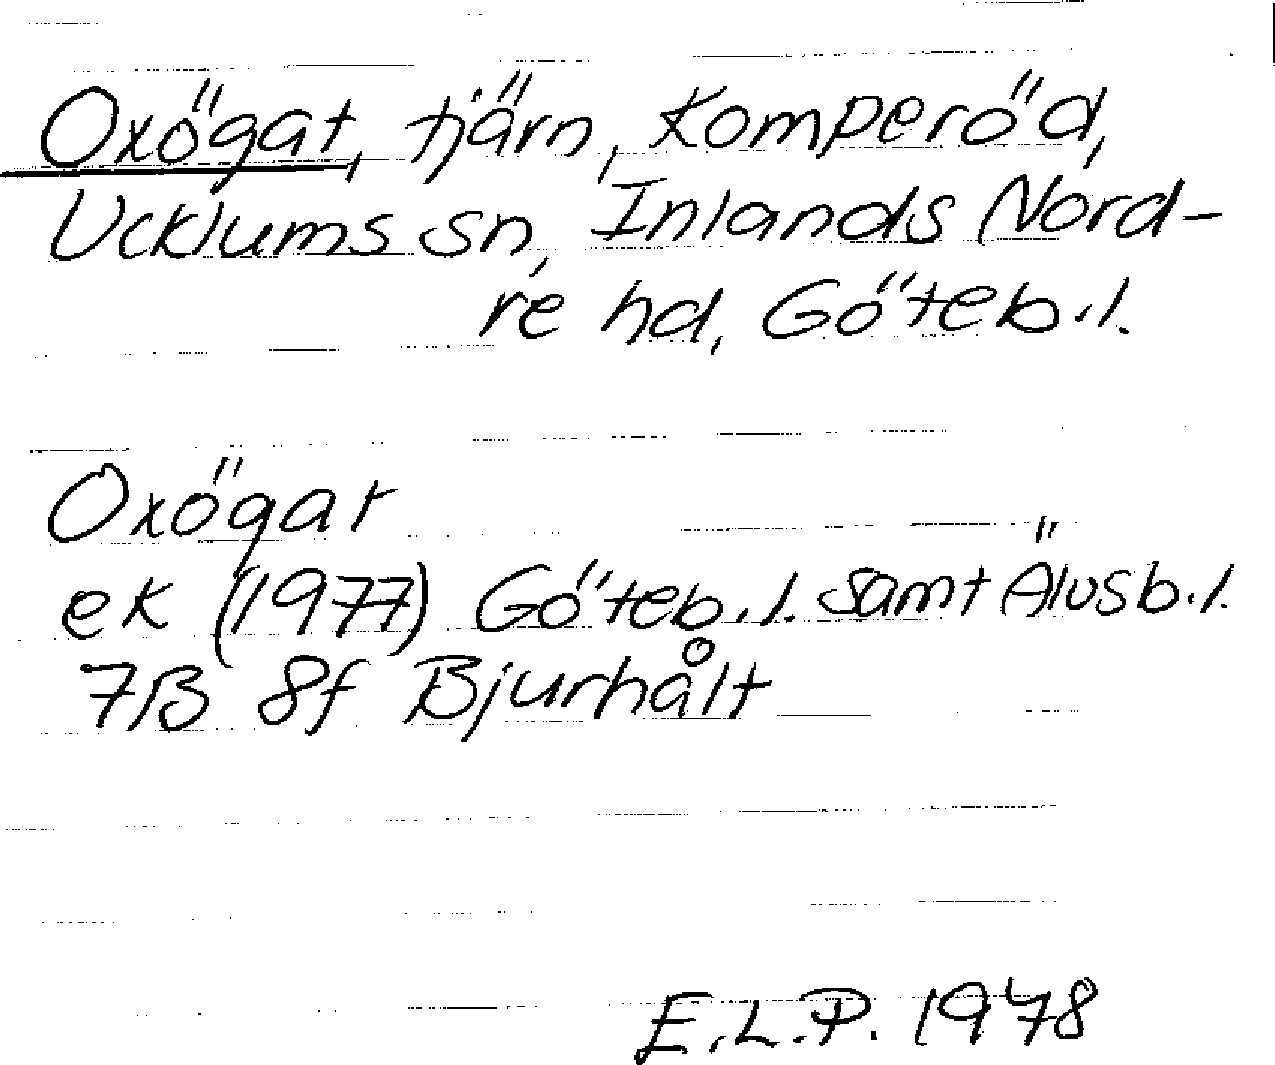 Oxögat, tjärn, Komperöd,
Ucklums sn, Inlands Nord-
re hd, Göteb.l.
Oxögat
ek (1977) Göteb.l. samt Älvsb.l.
7B 8f Bjurhålt
E.L.P. 1978